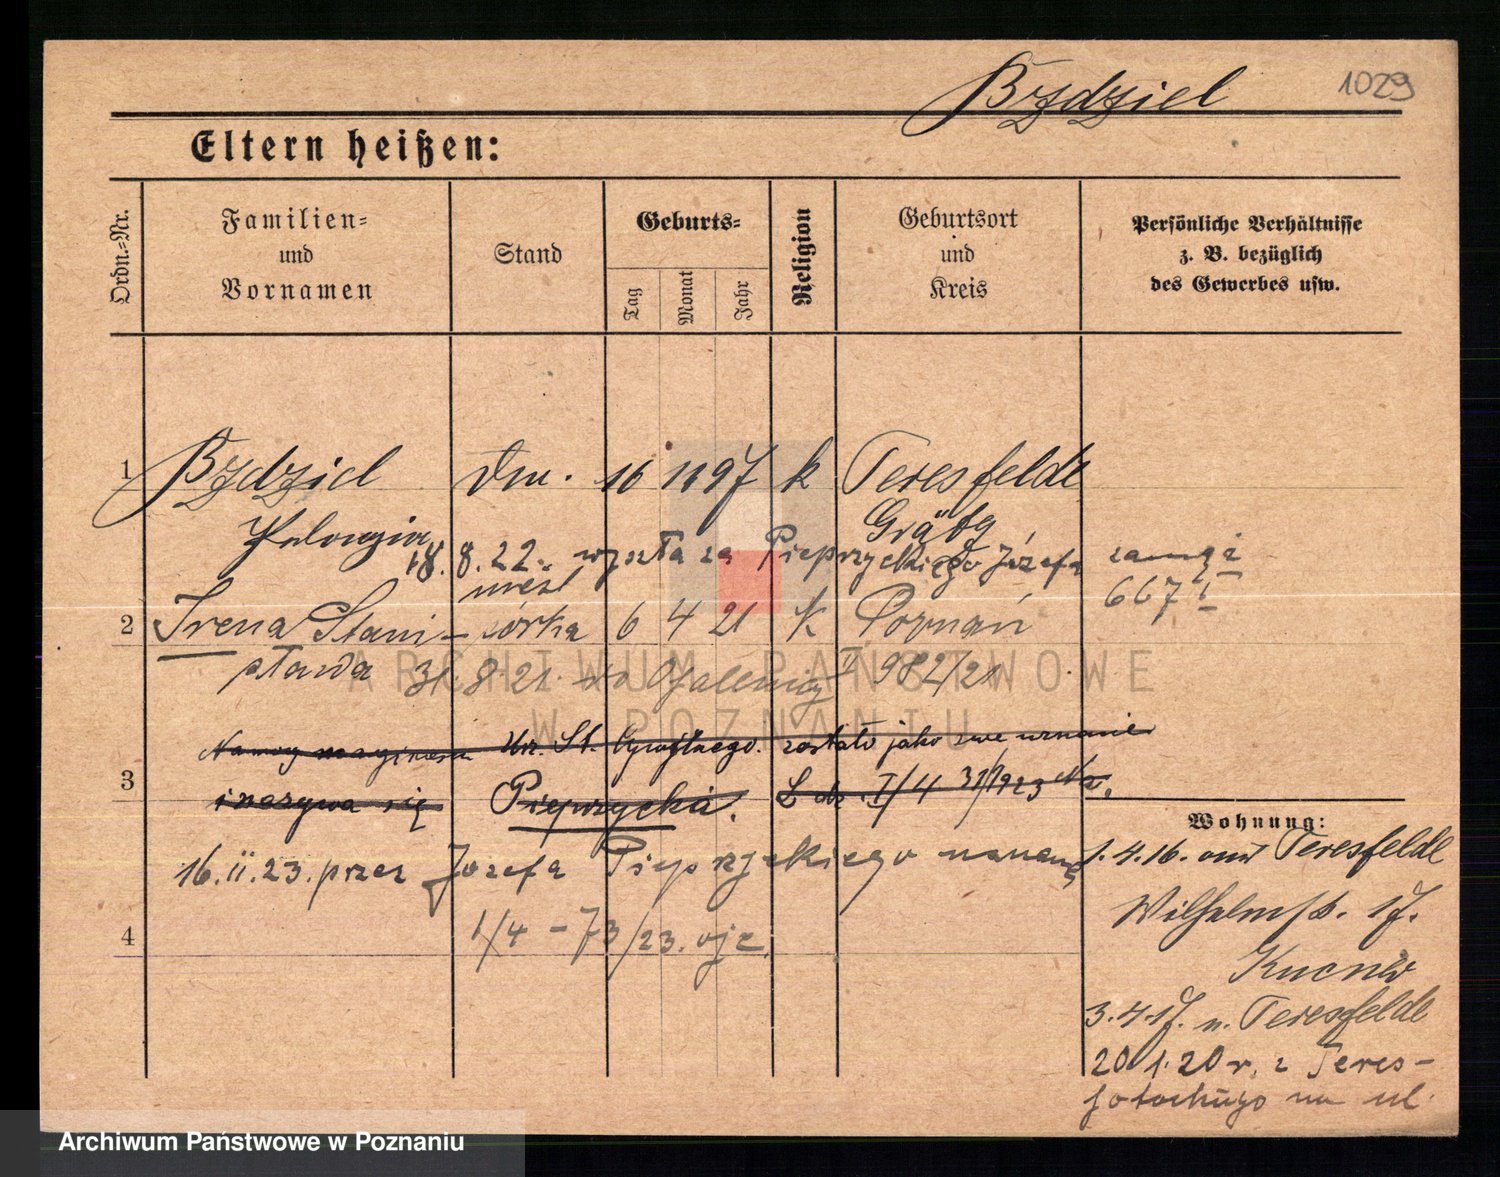 Bzdziel 1029
Eltern heißen:
Ordn.=Nr.
Familien=
und
Vornamen
Stand
Geburts=
Tag
Monat
Jahr
Religion
Geburtsort
und
Kreis
Persönliche Verhältnisse
z. B. bezüglich
des Gewerbes usw.
1 Bzdziel Dm. 16 11 97 k Teresfelde
Pelongia Grätz
18.8.22. wyszła za Pieprzyckiego Józefa zamąż
667
2 Irena Stani- córka 6 4 21 k Poznań
sława 31.8.21. do II 982/21
Urz. St. Cywilnego. zostało jako
3 i nazywa się Pieprzycka. I/4
16.II.23. przez Józefa Pieprzyckiego uznane
4 1/4 - 73/23. ojc.
Wohnung:
1.4.16. aus Teresfelde
Wilhelmstr. 17.
3.4.17. n. Teresfelde
20.1.20 r. z Teres-
na ul.
ARCHIWUM PAŃSTWOWE
W POZNANIU
Archiwum Państwowe w Poznaniu